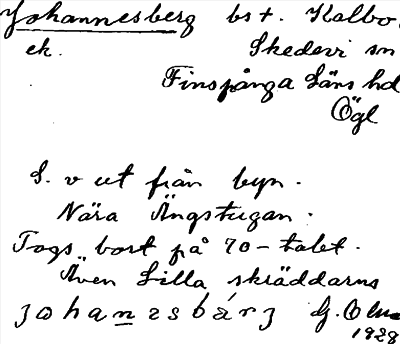 Johannesberg bst. Kalbo
ek. Skedevi sn
Finspånga läns hd
Ögl
S. v ut från byn.
Nära Ängstugan.
Togs bort på 70-talet.
Även Lilla skräddarns
johanesbárj G.
1928